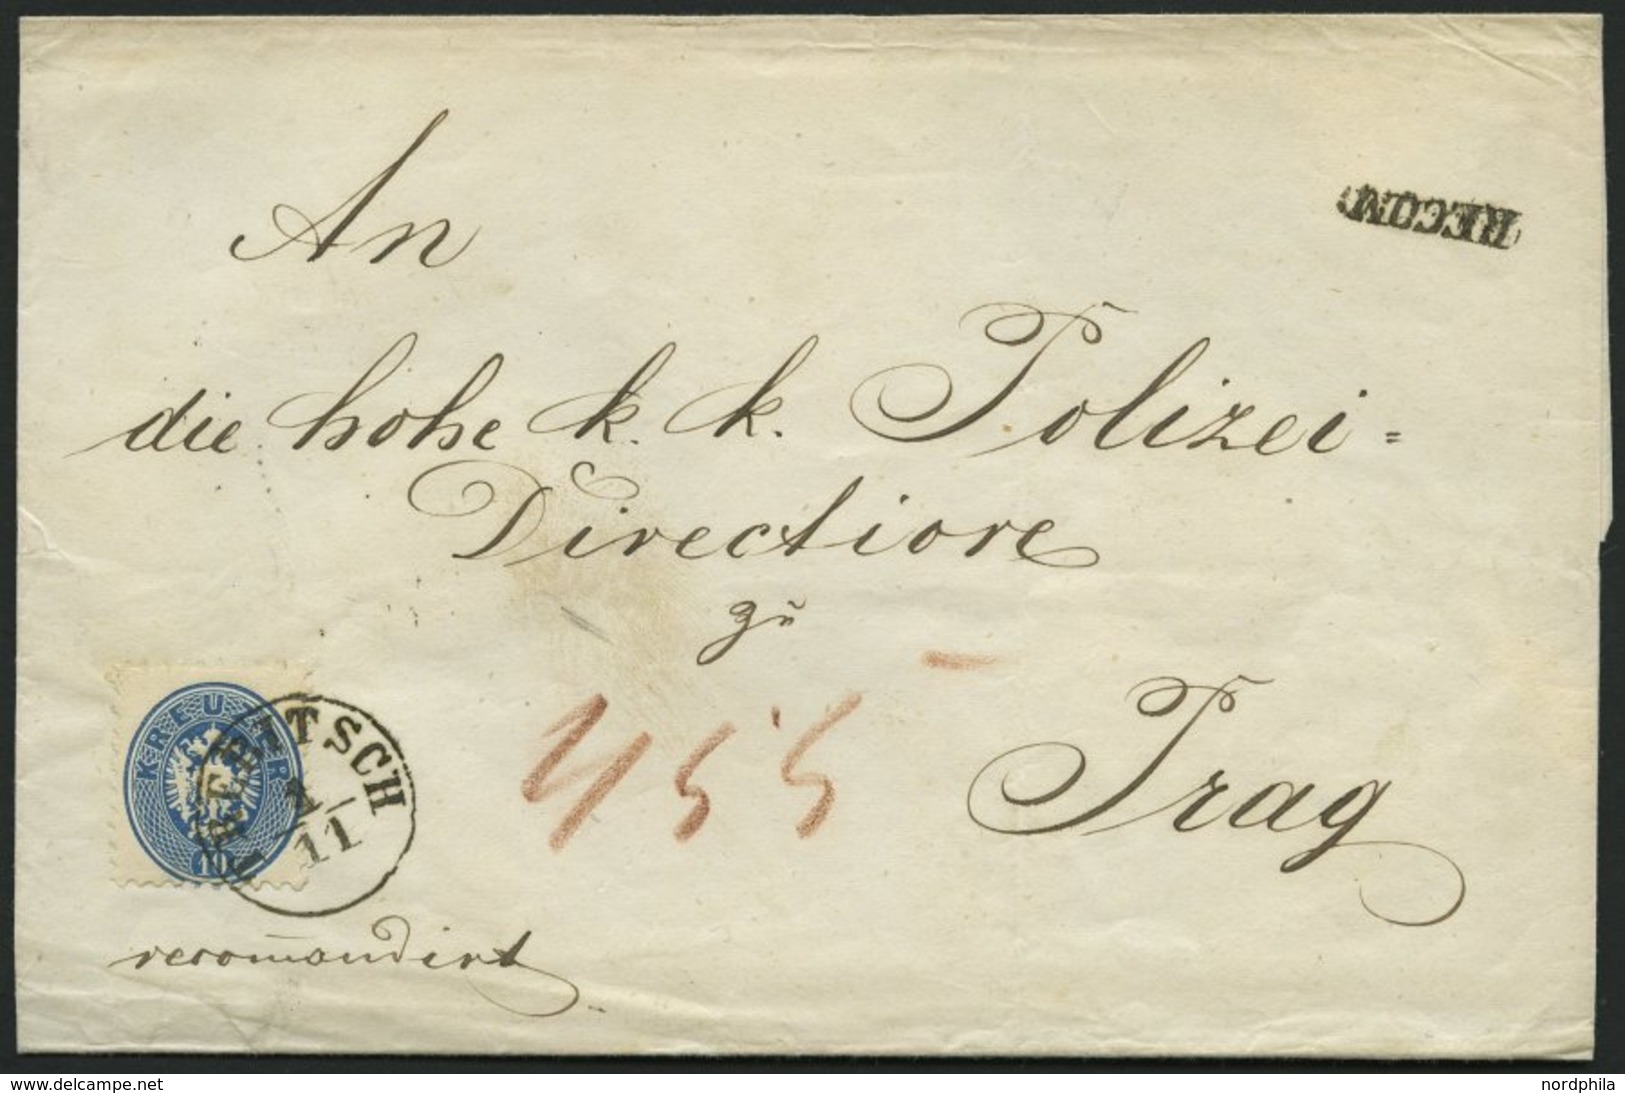 An
RECOM:
die hohe k. k. Polizei=
Directione
zu
Prag
455
KREUZER
10
TREBITSCH
1/11
recom̄andirt
www.delcampe.net
nordphila